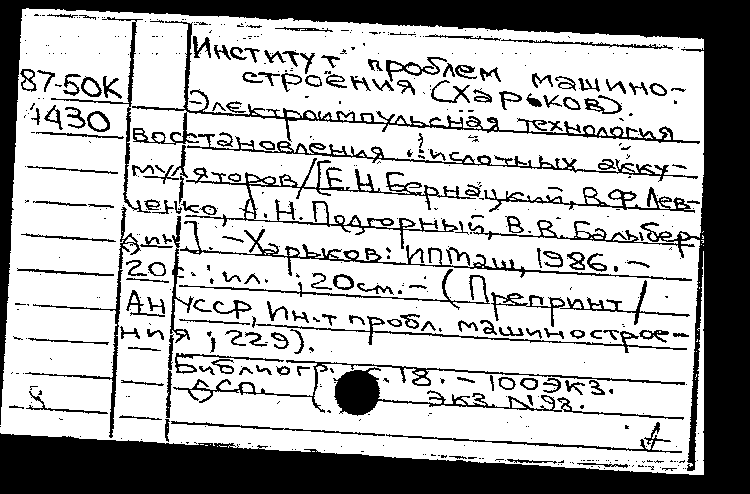 Институт проблем машино-
строения (Харьков).
87-50К
4430
Электроимпульсная технология
восстановления кислотных акку-
муляторов/[Е.Н.Бернацкий, В.Ф.Лев-
ченко, А.Н.Подгорный, В.В.Балыбер-
дин]. – Харьков: ИПМаш, 1986. –
20с. : ил. ; 20см. – (Препринт /
АН УССР, Ин-т пробл. машинострое-
ния ; 229).
Библиогр.: с.18. – 100экз.
ДСП. экз. N98.